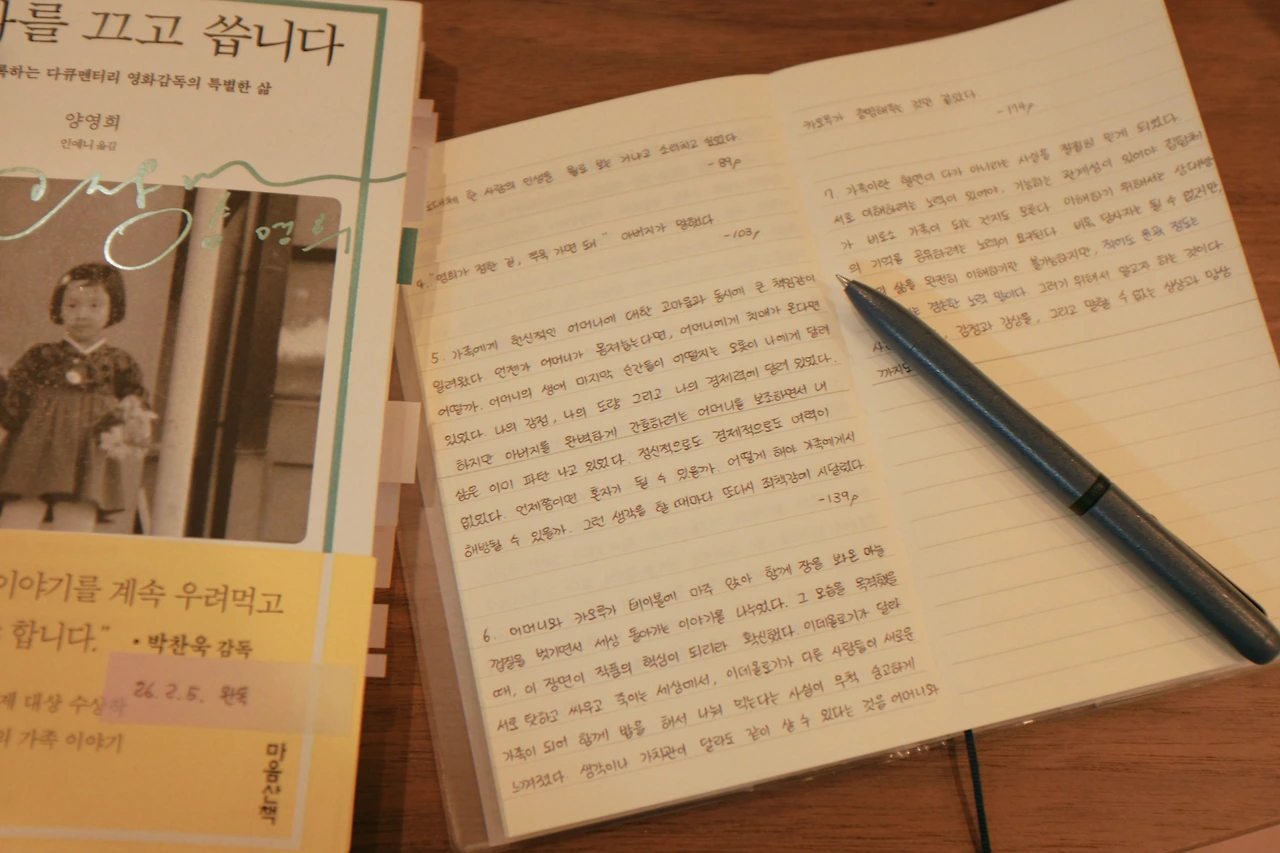 를 끄고 씁니다
하는 다큐멘터리 영화감독의 특별한 삶
양영희
인예니 옮김
영희
이야기를 계속 우려먹고
합니다." • 박찬욱 감독
26. 2. 5. 완독
제 대상 수상작
의 가족 이야기
마음산책
한 사람의 인생을 뭘로 보는 거냐고 소리치고 싶었다
- 89p
4. "영희가 정한 곳, 쭉욱 가면 돼" 아버지가 말했다
-103p
5. 가족에게 헌신적인 어머니에 대한 고마움과 동시에 큰 책임감이
밀려왔다. 언젠가 어머니가 몸져눕는다면, 어머니에게 치매가 온다면
어떨까. 어머니의 생애 마지막 순간들이 어떨지는 오롯이 나에게 달려
있었다. 나의 감정, 나의 도량 그리고 나의 경제력에 달려 있었다.
하지만 아버지를 완벽하게 간호하려는 어머니를 보조하면서 내
삶은 이미 파탄 나고 있었다. 정신적으로도 경제적으로도 여력이
없었다. 언제쯤이면 혼자가 될 수 있을까. 어떻게 해야 가족에게서
해방될 수 있을까. 그런 생각을 할 때마다 또다시 죄책감에 시달렸다
-139p
6. 어머니와 카오루가 테이블에 마주 앉아 함께 장을 봐온 마늘
껍질을 벗기면서 세상 돌아가는 이야기를 나누었다. 그 모습을 목격했을
때, 이 장면이 작품의 핵심이 되리라 확신했다. 이데올로기가 달라
서로 탓하고 싸우고 죽이는 세상에서, 이데올로기가 다른 사람들이 새로운
가족이 되어 함께 밥을 해서 나눠 먹는다는 사실이 무척 숭고하게
느껴졌다. 생각이나 가치관이 달라도 같이 살 수 있다는 것을 어머니와
카오루가 증명해주는 것만 같았다
-174p
7. 가족이란 혈연이 다가 아니라는 사실을 절절히 믿게 되었다.
서로 이해하려는 노력이 있어야, 기능하는 관계성이 있어야 집합체
가 비로소 가족이 되는 건지도 모른다. 이해하기 위해서는 상대방
의 기억을 공유하려는 노력이 요구된다. 비록 당사자는 될 수 없지만,
삶을 완전히 이해하기란 불가능하지만, 적어도 은 정도는
는 겸손한 노력 말이다. 그러기 위해서 알고자 하는 것이다
감정과 감상들, 그리고 말할 수 없는 상상과 망상
까지도